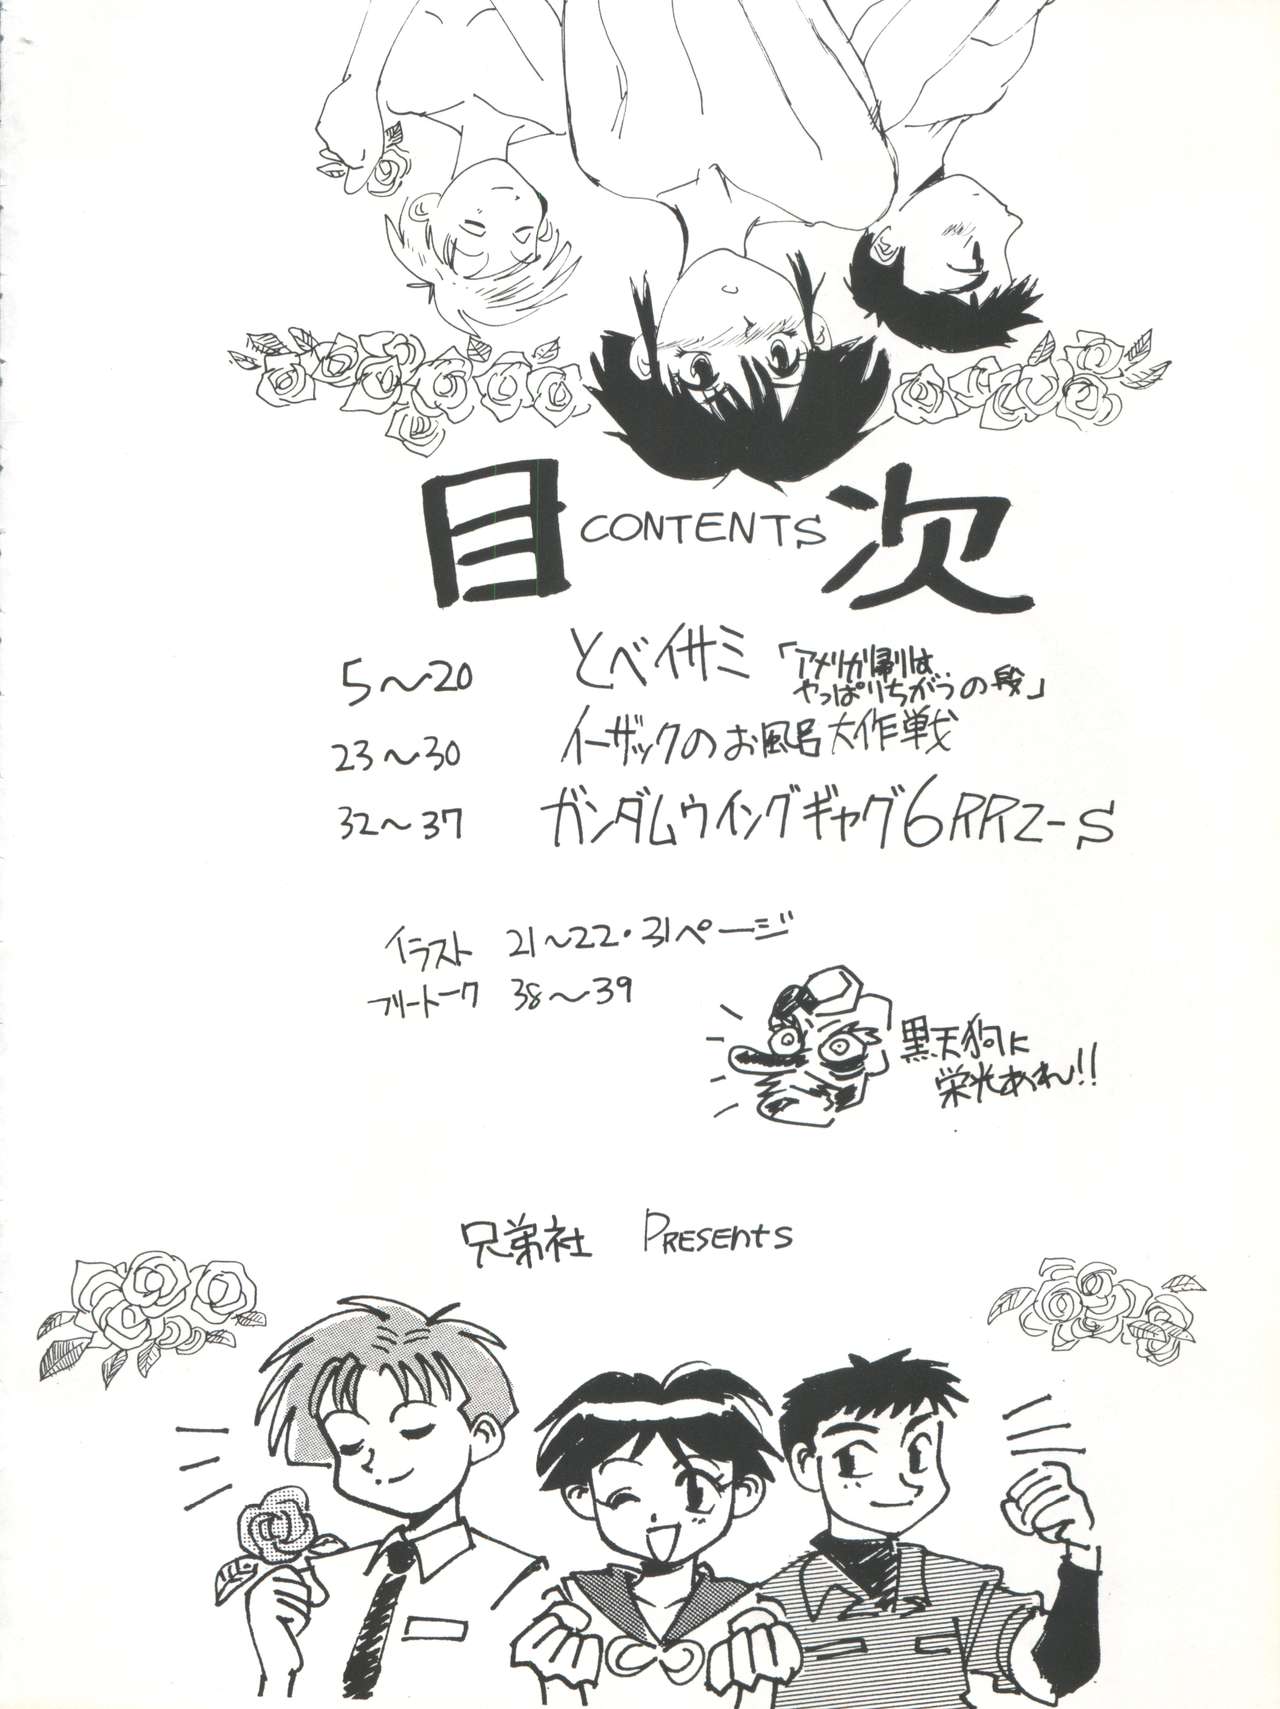 目次
CONTENTS
5〜20 とべイサミ 「アメリカ帰りは
やっぱりちがうの段」
23〜30 イーザックのお風呂大作戦
32〜37 ガンダムウイングギャグ6RRZ-S
イラスト 21〜22・31ページ
フリートーク 38〜39
黒天狗に
栄光あれ!!
兄弟社 PRESENTS